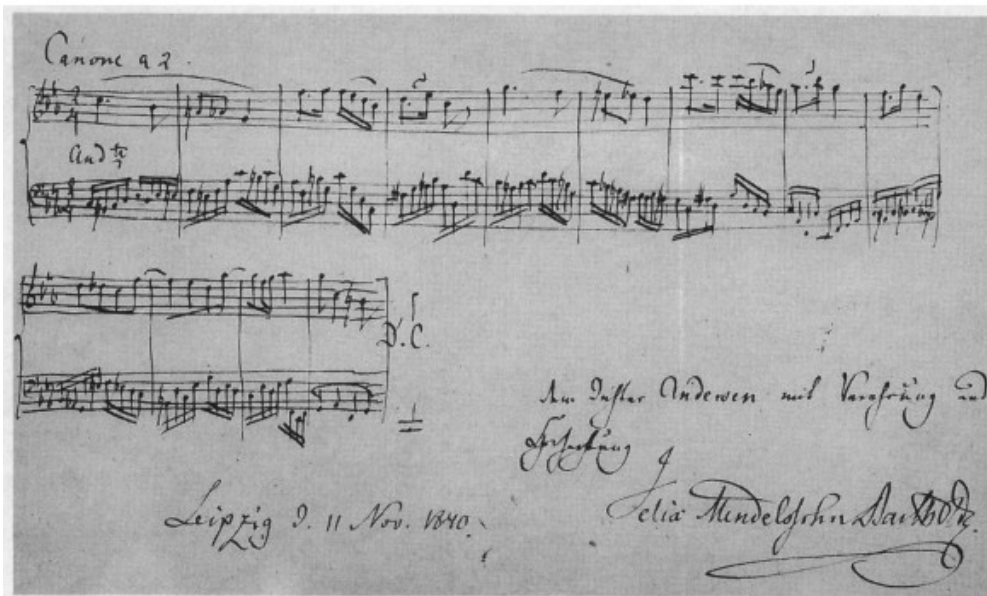 Canone a 2.
And te
D. C.
dem Dichter Andersen mit Verehrung und
Hochachtung
Leipzig d. 11 Nov. 1840.
Felix Mendelssohn Bartholdy.